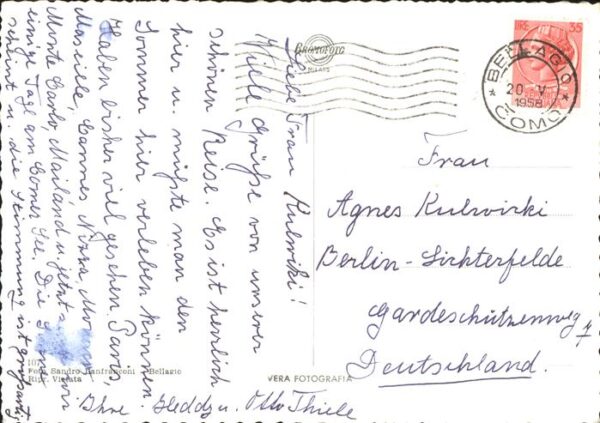 Liebe Frau Kulwicki!
Viele Grüße von unserer
schönen Reise. Es ist herrlich
hier u. müßte man den
Sommer hier verleben können
Haben bisher viel gesehen. Paris,
Marseille, Cannes, Nizza,
Monte Carlo, Mailand u. jetzt
einige Tage am Comer See. Die
scheint u die Stimmung ist großartig
Ihre Heddy u. Otto Thiele
CROMOFOTO
MILANO
LIRE 35
BELLAGIO
20 - V
1958
COMO
Frau
Agnes Kulwicki
Berlin-Lichterfelde
Gardeschützenweg 7
Deutschland.
107
Foto Sandro Ganfranconi Bellagio
Rip. Vietata
VERA FOTOGRAFIA